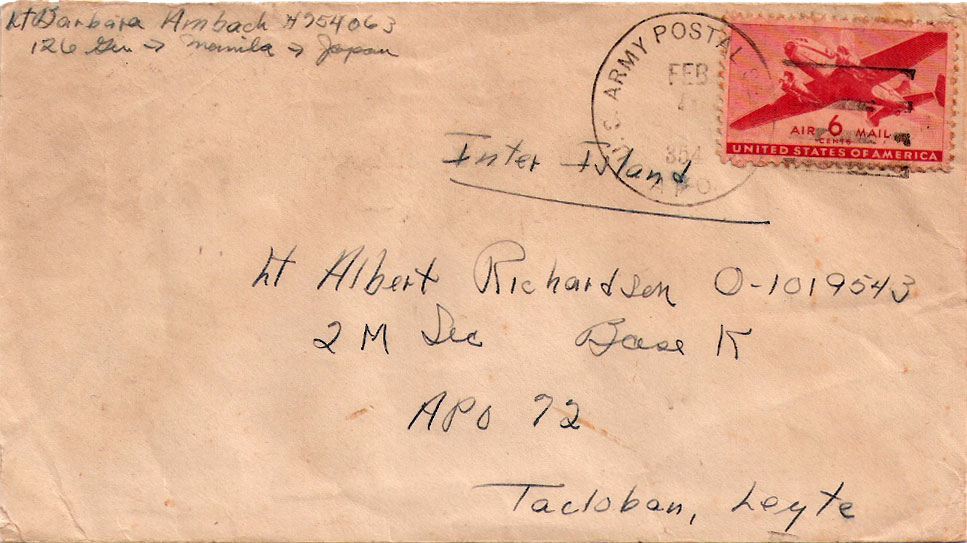 Lt Barbara Ambach N754063
126 Gen → Manila → Japan
U.S. ARMY POSTAL
FEB
354
APO
AIR 6 MAIL
CENTS
UNITED STATES OF AMERICA
Inter Island
Lt Albert Richardson O-1019543
2 M Sec Base K
APO 72
Tacloban, Leyte